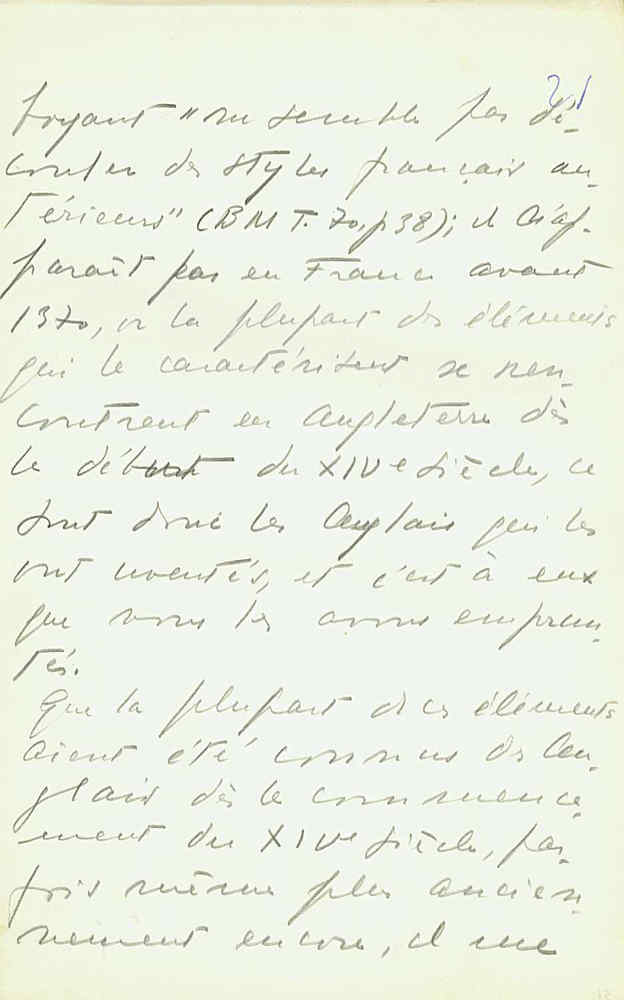 boyant "ne semble pas dé-
couler des styles français an-
térieurs" (BM T. 70, p 38); il n'ap-
paraît pas en France avant
1370, or la plupart des éléments
qui le caractérisent se ren-
contrent en Angleterre dès
le début du XIVe siècle, ce
sont donc les Anglais qui les
ont inventés, et c'est à eux
que nous les avons emprun-
tés.
Que la plupart de ces éléments
aient été connus des An-
glais dès le commence-
ment du XIVe siècle, par-
fois même plus ancien-
nement encore, il me